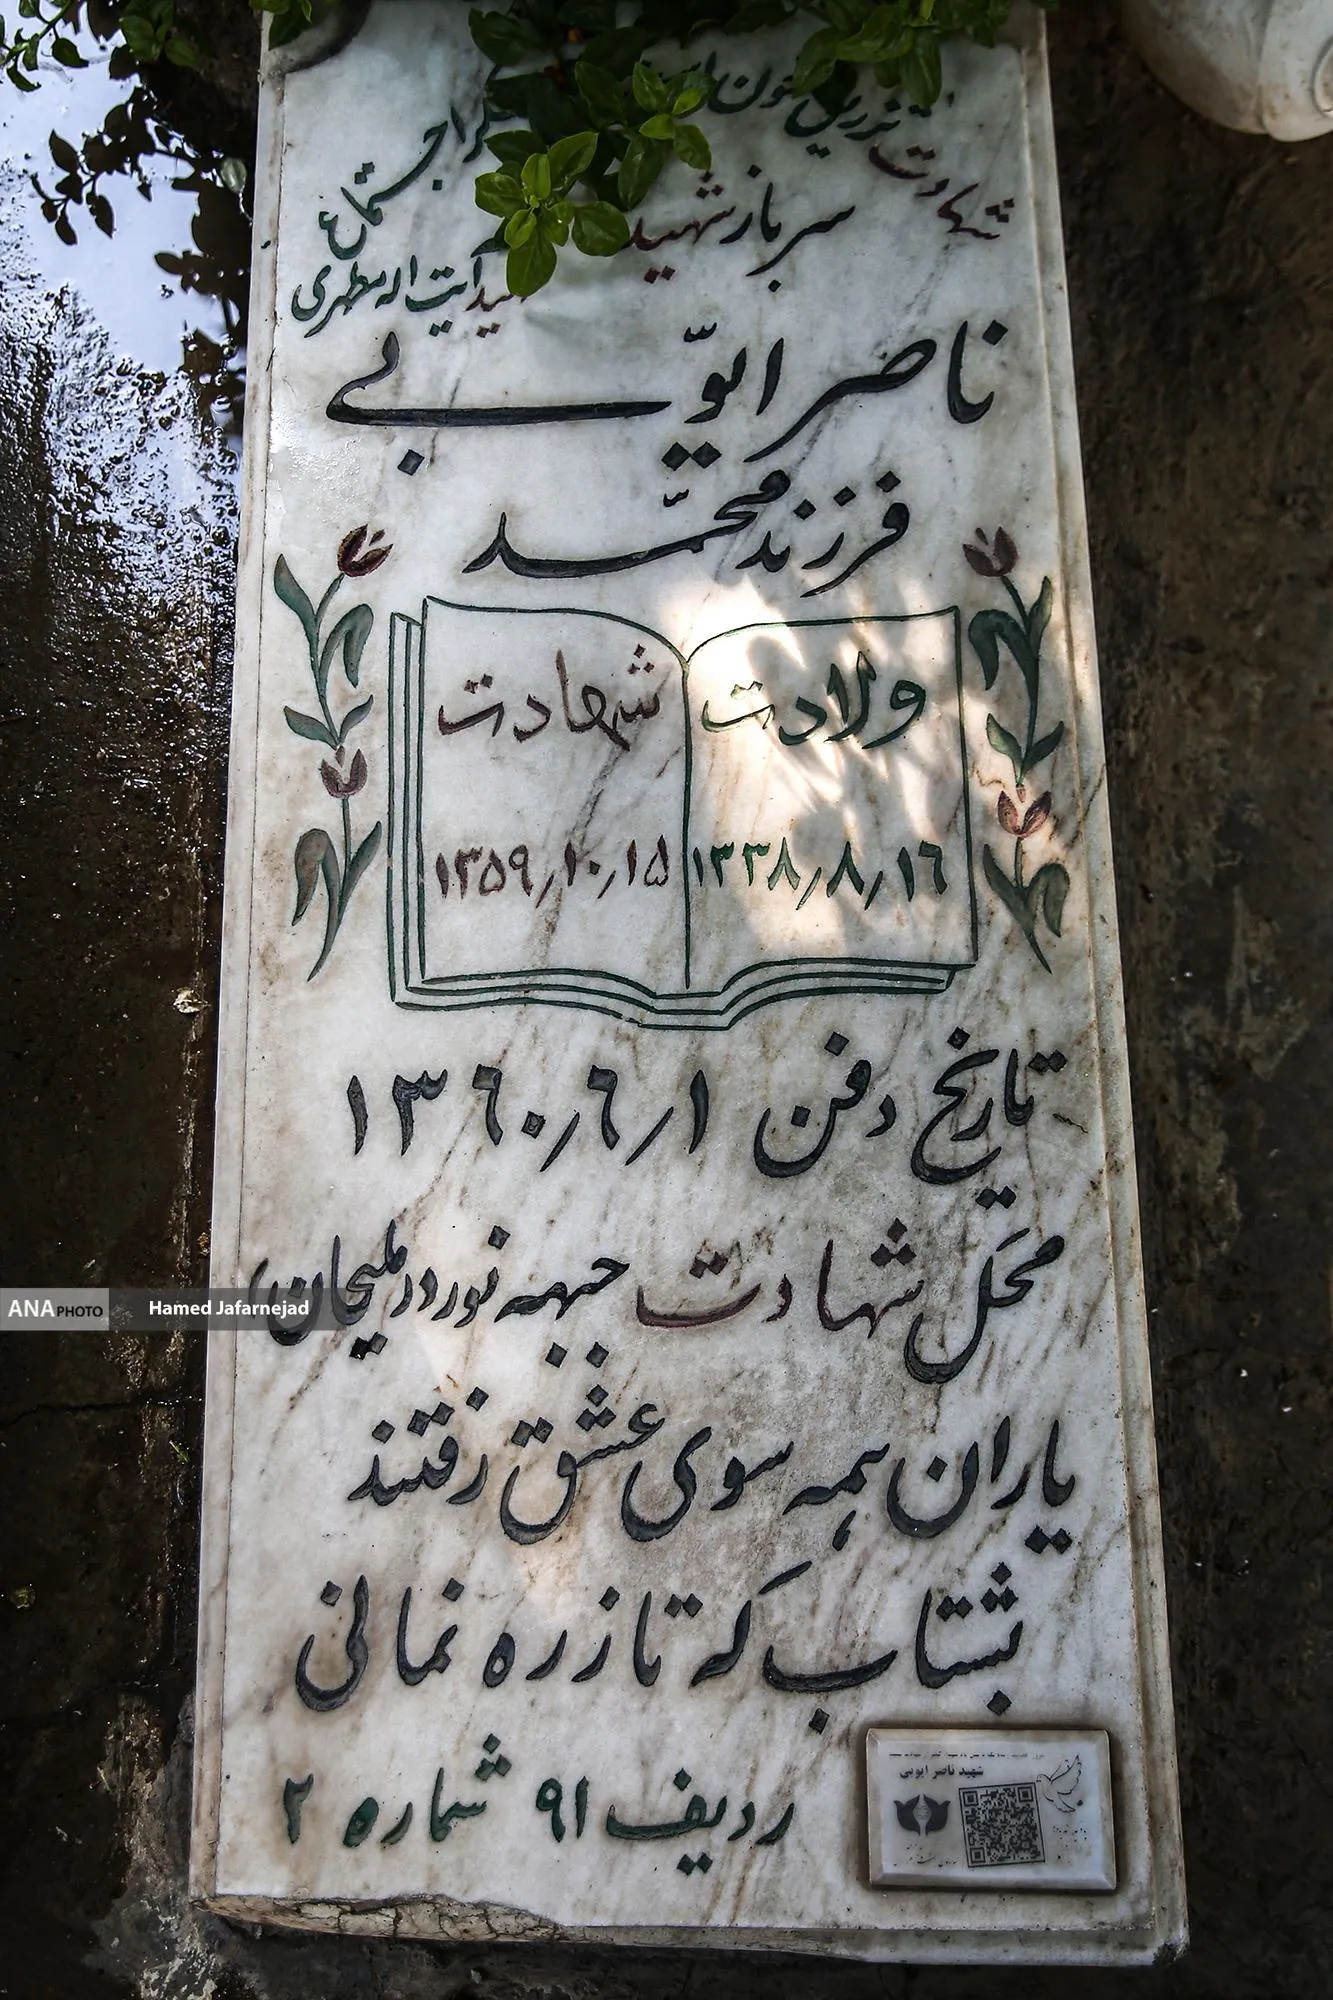 شهادت تزریق خون است
اجتماع
سرباز شهید
آیت اله مطهری
ناصر ایّوبی
فرزند محمّد
ولادت شهادت
۱۳۳۸٫۸٫۱۶ ۱۳۵۹٫۱۰٫۱۵
تاریخ دفن ۱۳۶۰٫۶٫۱
محَل شهادت جبهه نورد (رملیجان)
یاران همه سوی عشق رفتند
بشتاب که تا ز ره نمانی
ردیف ۹۱ شماره ۲
شهید ناصر ایوبی
ANA PHOTO Hamed Jafarnejad